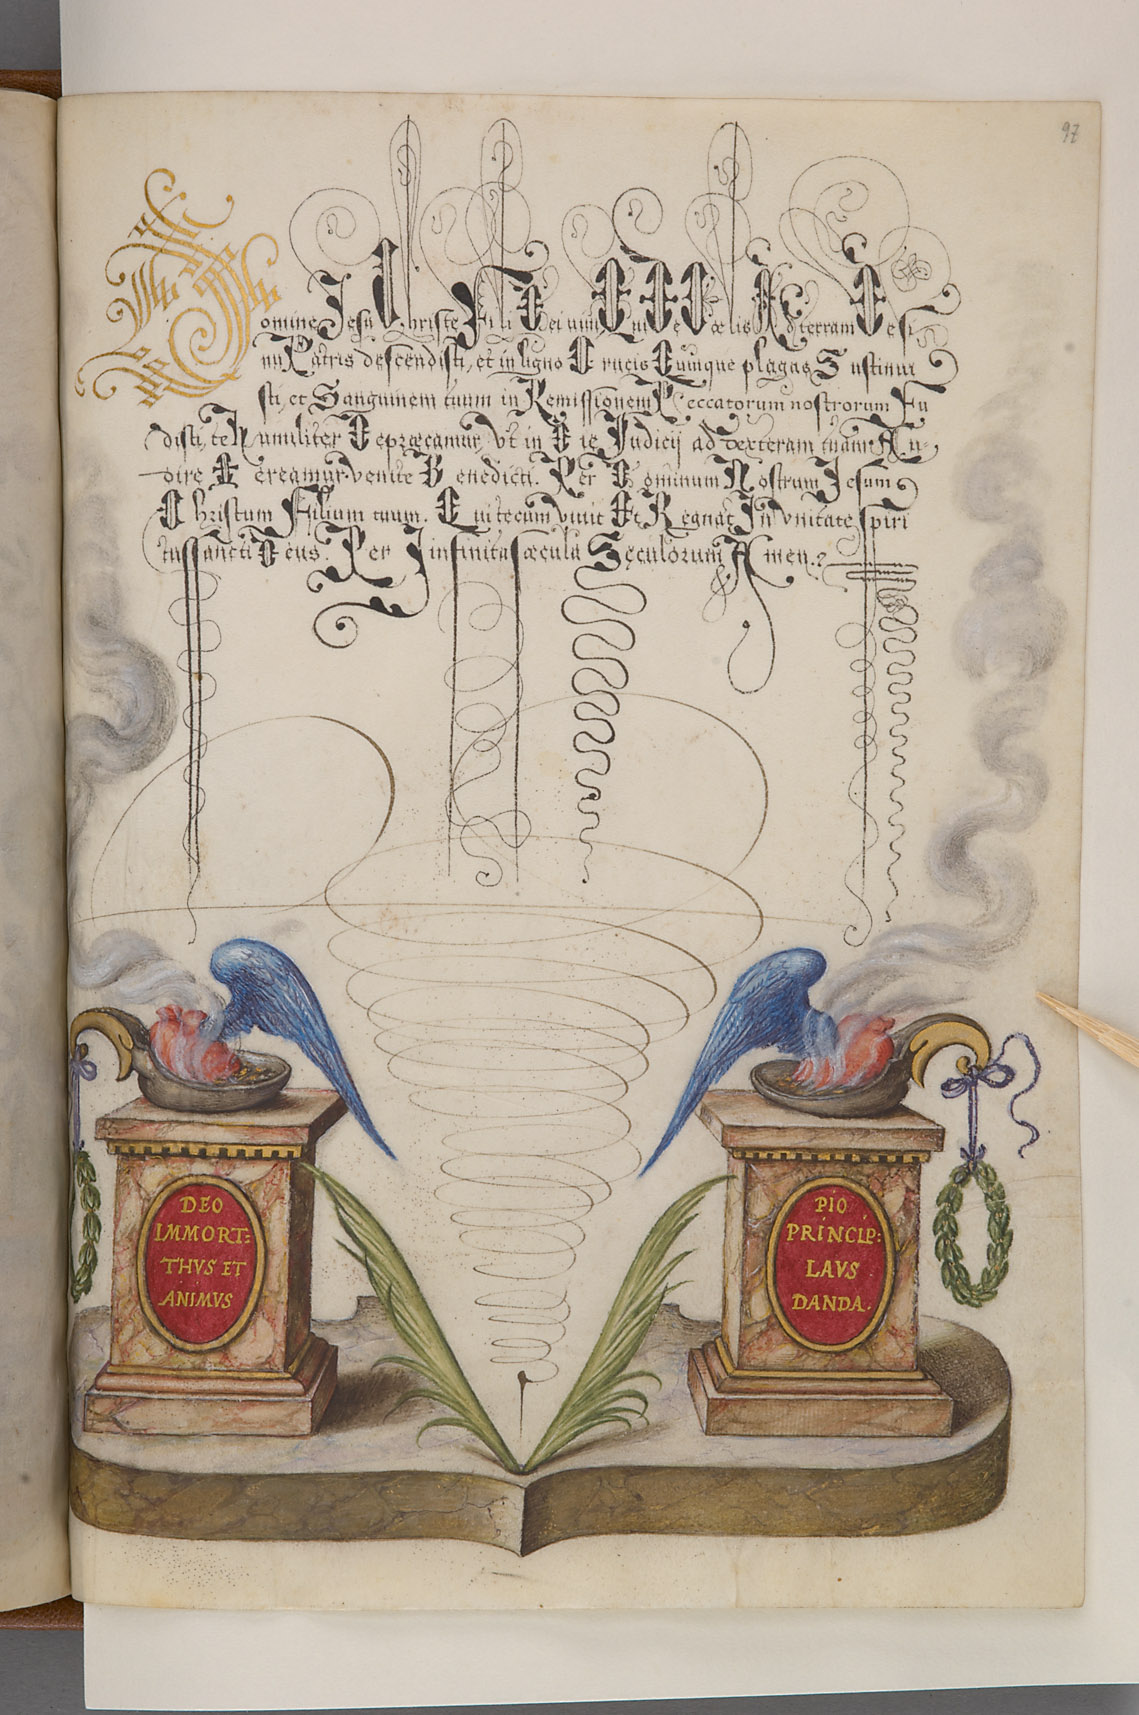 97
Domine Jesu Christe Fili Dei vivi Qui De Cœlis Ad terram De Si
nu Patris descendisti, et in ligno Crucis Quinque plagas Sustinui
sti, et Sanguinem tuum in Remissionem Peccatorum nostrorum Fu
disti, te Humiliter Deprecamur, Vt in Die Judicij ad dexteram tuam Au-
dire Mereamur. venite Benedicti. Per Dominum Nostrum Jesum
Christum Filium tuum. Qui tecum vivit Et Regnat In vnitate spiri
tus sancti Deus. Per Infinita sæcula Seculorum Amen.
DEO
IMMORT:
THVS ET
ANIMVS
PIO
PRINCIP:
LAVS
DANDA.